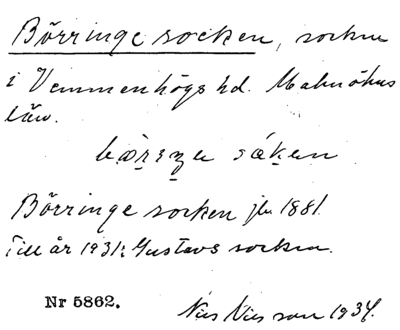 Börringe socken, socken
i Vemmenhögs hd. Malmöhus
län.
Börringe socken jb. 1881.
Till år 1931: Gustavs socken.
Nr 5862.
Nils Nilsson 1934.